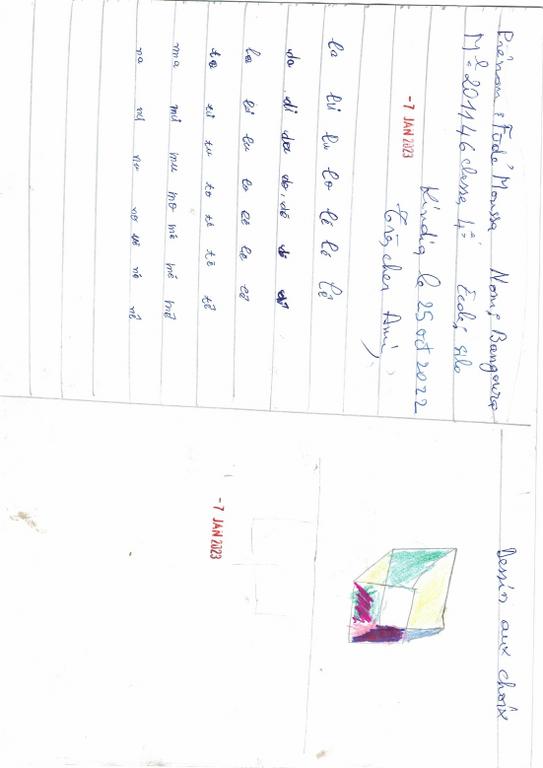 Prénom : Fodé Moussa Nom : Bangoura
Mle = 201146 classe, 4e École, Silo
- 7 JAN 2023
Kindia le 25 oct 2022
Très cher Ami,
la li lu lo lé lè lê
da di du do dé
ta ti tu to té tè tê
ma mi mu mo mé mè mê
na ni nu no né nè nê
Dessin aux choix
- 7 JAN 2023